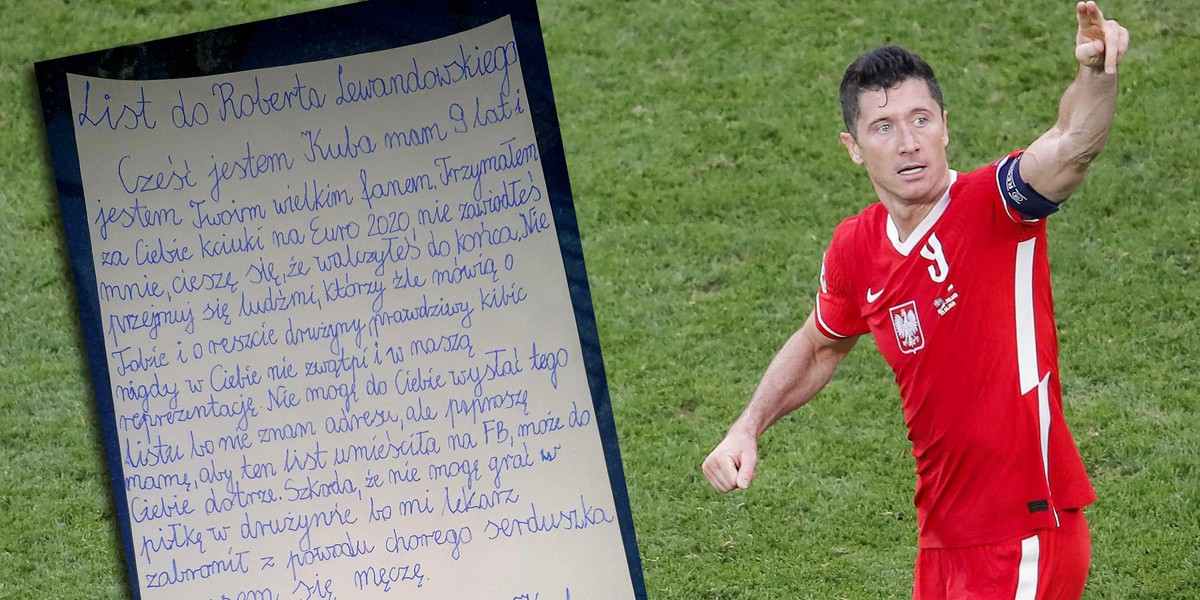 List do Roberta Lewandowskiego
Cześć jestem Kuba mam 9 lat i
jestem Twoim wielkim fanem. Trzymałem
za Ciebie kciuki na Euro 2020, nie zawiodłeś
mnie, cieszę się, że walczyłeś do końca. Nie
przejmuj się ludźmi, którzy źle mówią o
Tobie i o reszcie drużyny prawdziwy kibic
nigdy w Ciebie nie zwątpi i w naszą
reprezentację. Nie mogę do Ciebie wysłać tego
listu bo nie znam adresu, ale poproszę
mamę, aby ten list umieściła na FB, może do
Ciebie dotrze. Szkoda, że nie mogę grać w
piłkę w drużynie bo mi lekarz
zabronił z powodu chorego serduszka
się męczę.
9